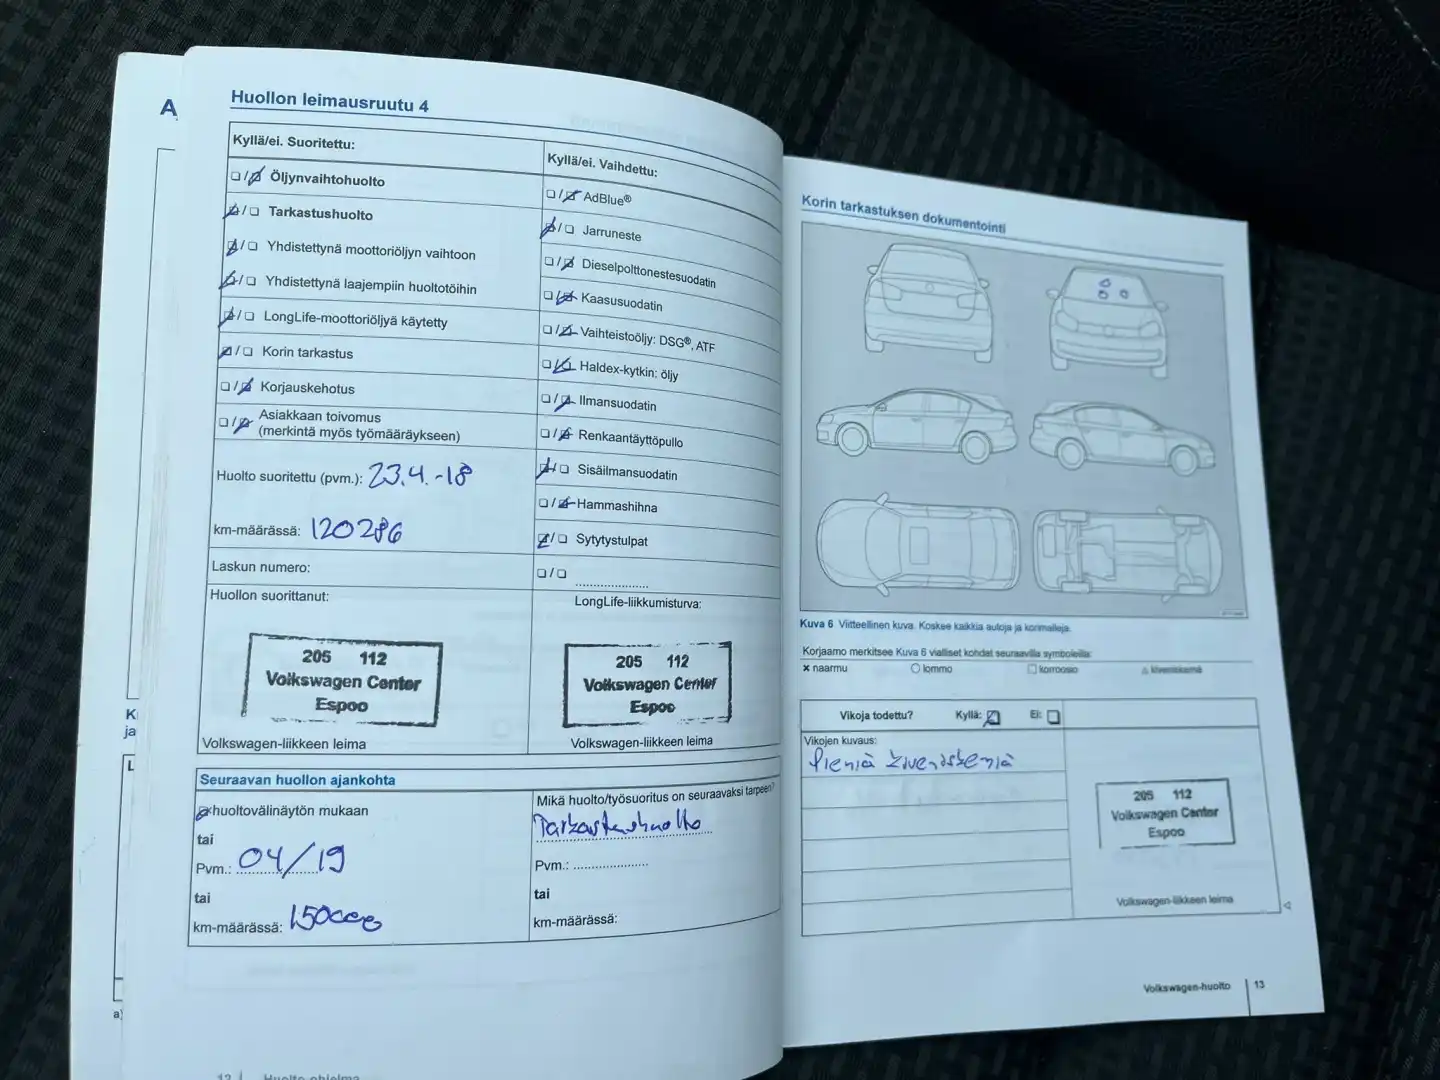 A
Huollon leimausruutu 4
Kyllä/ei. Suoritettu:
Öljynvaihtohuolto
Tarkastushuolto
Yhdistettynä moottoriöljyn vaihtoon
Yhdistettynä laajempiin huoltotöihin
LongLife-moottoriöljyä käytetty
Korin tarkastus
Korjauskehotus
Asiakkaan toivomus
(merkintä myös työmääräykseen)
Huolto suoritettu (pvm.): 23.4.-18
km-määrässä: 120286
Laskun numero:
Huollon suorittanut:
205 112
Volkswagen Center
Espoo
Volkswagen-liikkeen leima
Kyllä/ei. Vaihdettu:
AdBlue®
Jarruneste
Dieselpolttonestesuodatin
Kaasusuodatin
Vaihteistoöljy: DSG®, ATF
Haldex-kytkin: öljy
Ilmansuodatin
Renkaantäyttöpullo
Sisäilmansuodatin
Hammashihna
Sytytystulpat
LongLife-liikkumisturva:
205 112
Volkswagen Center
Espoo
Volkswagen-liikkeen leima
Seuraavan huollon ajankohta
huoltovälinäytön mukaan
tai
Pvm.: 04/19
tai
km-määrässä: 150000
Mikä huolto/työsuoritus on seuraavaksi tarpeen?
Tarkastushuolto
Pvm.:
tai
km-määrässä:
Korin tarkastuksen dokumentointi
Kuva 6 Viitteellinen kuva. Koskee kaikkia autoja ja korimalleja.
Korjaamo merkitsee Kuva 6 vialliset kohdat seuraavilla symboleilla:
x naarmu
lommo
korroosio
kiveniskemä
Vikoja todettu? Kyllä: Ei:
Vikojen kuvaus:
Pieniä kiveniskemiä
205 112
Volkswagen Center
Espoo
Volkswagen-liikkeen leima
Volkswagen-huolto 13